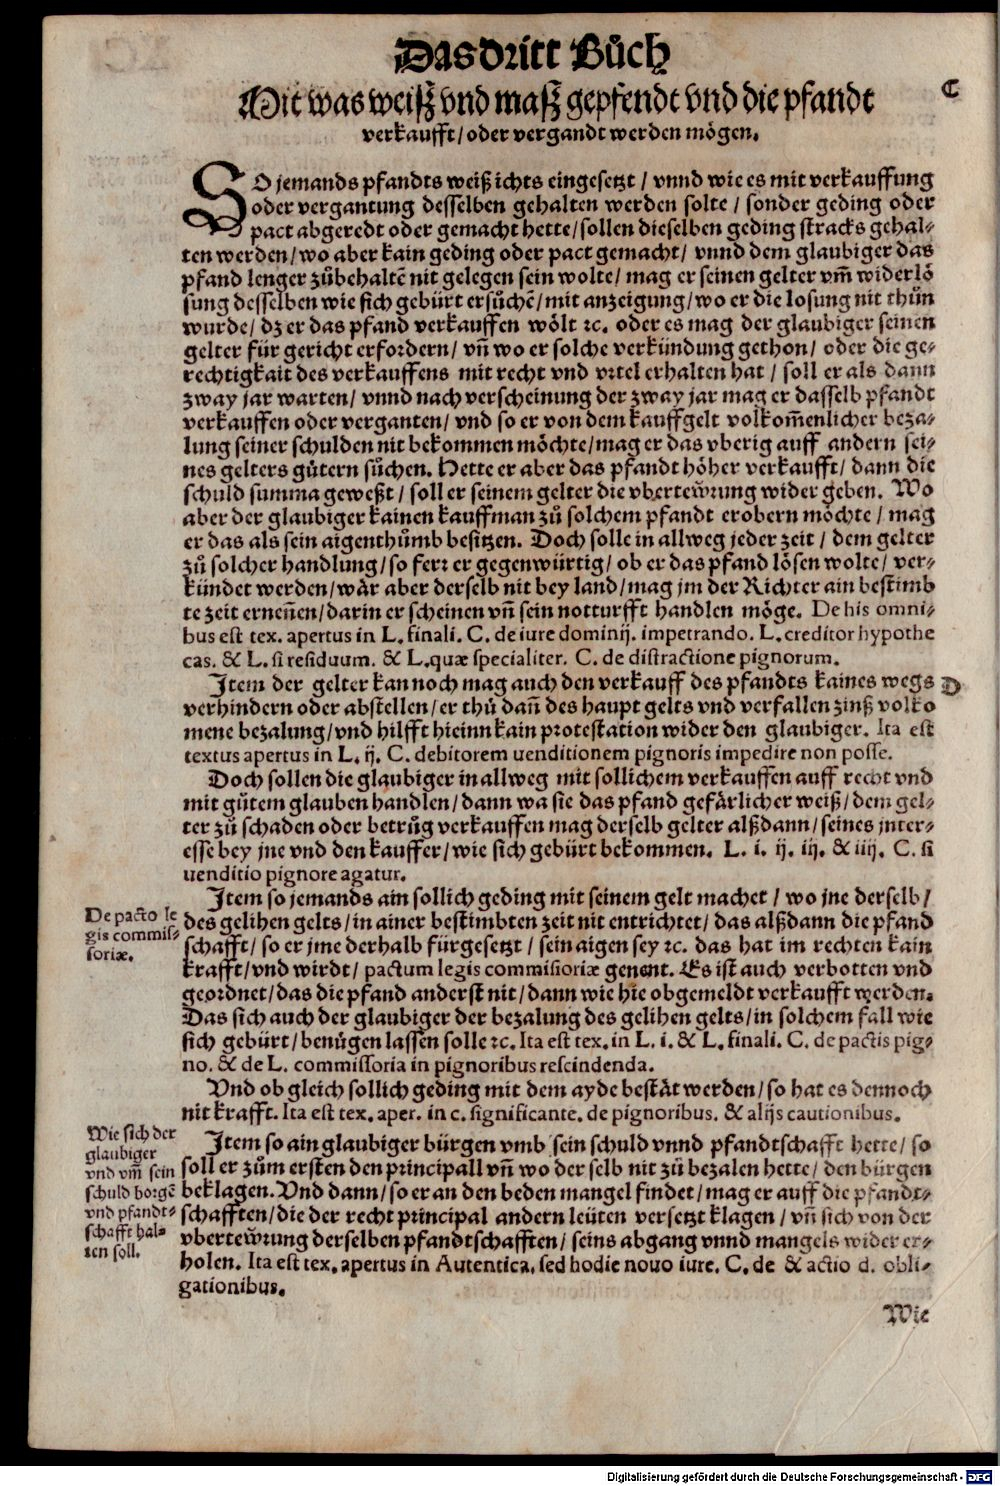 Das dritt Bůch
Mit was weisz vnd masz gepfendt vnd die pfandt
verkaufft/ oder vergandt werden mögen.
C
SO jemands pfandts weiß ichts eingesetzt / vnnd wie es mit verkauffung
oder vergantung desselben gehalten werden solte / sonder geding oder
pact abgeredt oder gemacht hette/ sollen dieselben geding stracks gehal-
ten werden/ wo aber kain geding oder pact gemacht/ vnnd dem glaubiger das
pfand lenger zůbehaltē nit gelegen sein wolte/ mag er seinen gelter vm̄ widerlö
sung desselben wie sich gebürt ersůchē/ mit anzeigung/ wo er die losung nit thůn
wurde/ dz er das pfand verkauffen wölt ꝛc. oder es mag der glaubiger seinen
gelter für gericht erfordern/ vn̄ wo er solche verkündung gethon/ oder die ge-
rechtigkait des verkauffens mit recht vnd vrtel erhalten hat / soll er als dann
zway jar warten/ vnnd nach verscheinung der zway jar mag er dasselb pfandt
verkauffen oder verganten/ vnd so er von dem kauffgelt volkom̄enlicher beza-
lung seiner schulden nit bekommen möchte/ mag er das vberig auff andern sei-
nes gelters gůtern sůchen. Hette er aber das pfandt höher verkaufft/ dann die
schuld summa geweßt / soll er seinem gelter die vberteẅrung wider geben. Wo
aber der glaubiger kainen kauffman zů solchem pfandt erobern möchte / mag
er das als sein aigenthůmb besitzen. Doch solle in allweg jeder zeit / dem gelter
zů solcher handlung/ so ferꝛ er gegenwürtig/ ob er das pfand lösen wolte/ ver-
kündet werden/ wär aber derselb nit bey land/ mag jm der Richter ain bestimb
te zeit ernen̄en/ darin er scheinen vn̄ sein notturfft handlen möge. De his omni-
bus est tex. apertus in L. finali. C. de iure dominij. impetrando. L. creditor hypothe
cas. & L. si residuum. & L. quæ specialiter. C. de distractione pignorum.
Item der gelter kan noch mag auch den verkauff des pfandts kaines wegs
D
verhindern oder abstellen/ er thů dan̄ des haupt gelts vnd verfallen zinß volko
mene bezalung/ vnd hilfft hieinn kain protestation wider den glaubiger. Ita est
textus apertus in L. ij. C. debitorem uenditionem pignoris impedire non posse.
Doch sollen die glaubiger in allweg mit sollichem verkauffen auff recht vnd
mit gůtem glauben handlen/ dann wa sie das pfand gefärlicher weiß/ dem gel-
ter zů schaden oder betrůg verkauffen mag derselb gelter alßdann/ seines jnter-
esse bey jne vnd den kauffer/ wie sich gebürt bekommen. L. i. ij. iij. & iiij. C. si
uenditio pignore agatur.
Item so jemands ain sollich geding mit seinem gelt machet / wo jne derselb/
De pacto le
gis commis-
soriæ.
des gelihen gelts/ in ainer bestimbten zeit nit entrichtet/ das alßdann die pfand
schafft/ so er jme derhalb fürgesetzt / sein aigen sey ꝛc. das hat im rechten kain
krafft/ vnd wirdt/ pactum legis commisioriæ genent. Es ist auch verbotten vnd
geordnet/ das die pfand anderst nit/ dann wie hie obgemeldt verkaufft werden.
Das sich auch der glaubiger der bezalung des gelihen gelts/ in solchem fall wie
sich gebürt/ benůgen lassen solle ꝛc. Ita est tex. in L. i. & L. finali. C. de pactis pig-
no. & de L. commissoria in pignoribus rescindenda.
Vnd ob gleich sollich geding mit dem ayde bestät werden/ so hat es dennoch
nit krafft. Ita est tex. aper. in c. significante. de pignoribus. & alijs cautionibus.
Wie sich der
glaubiger
vnd vm̄ sein
schuld borgē
vnd pfandt-
schafft hal-
ten soll.
Item so ain glaubiger bürgen vmb sein schuld vnnd pfandtschafft hette/ so
soll er zům ersten den principall vn̄ wo der selb nit zů bezalen hette/ den bürgen
beklagen. Vnd dann/ so er an den beden mangel findet/ mag er auff die pfandt-
schafften/ die der recht principal andern leüten versetzt klagen / vn̄ sich von der
vberteẅrung derselben pfandtschafften/ seins abgang vnnd mangels wider er-
holen. Ita est tex. apertus in Autentica. sed hodie nouo iure. C. de & actio d. obli-
gationibus.
Wie
Digitalisierung gefördert durch die Deutsche Forschungsgemeinschaft - DFG